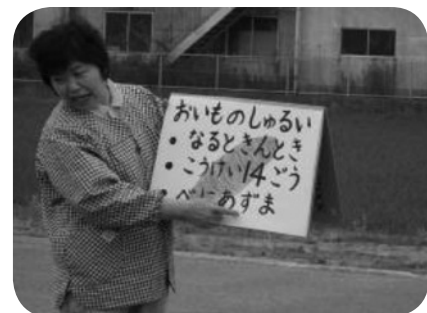 おいものしゅるい
・なるときんとき
・こうけい14ごう
・べにあずま